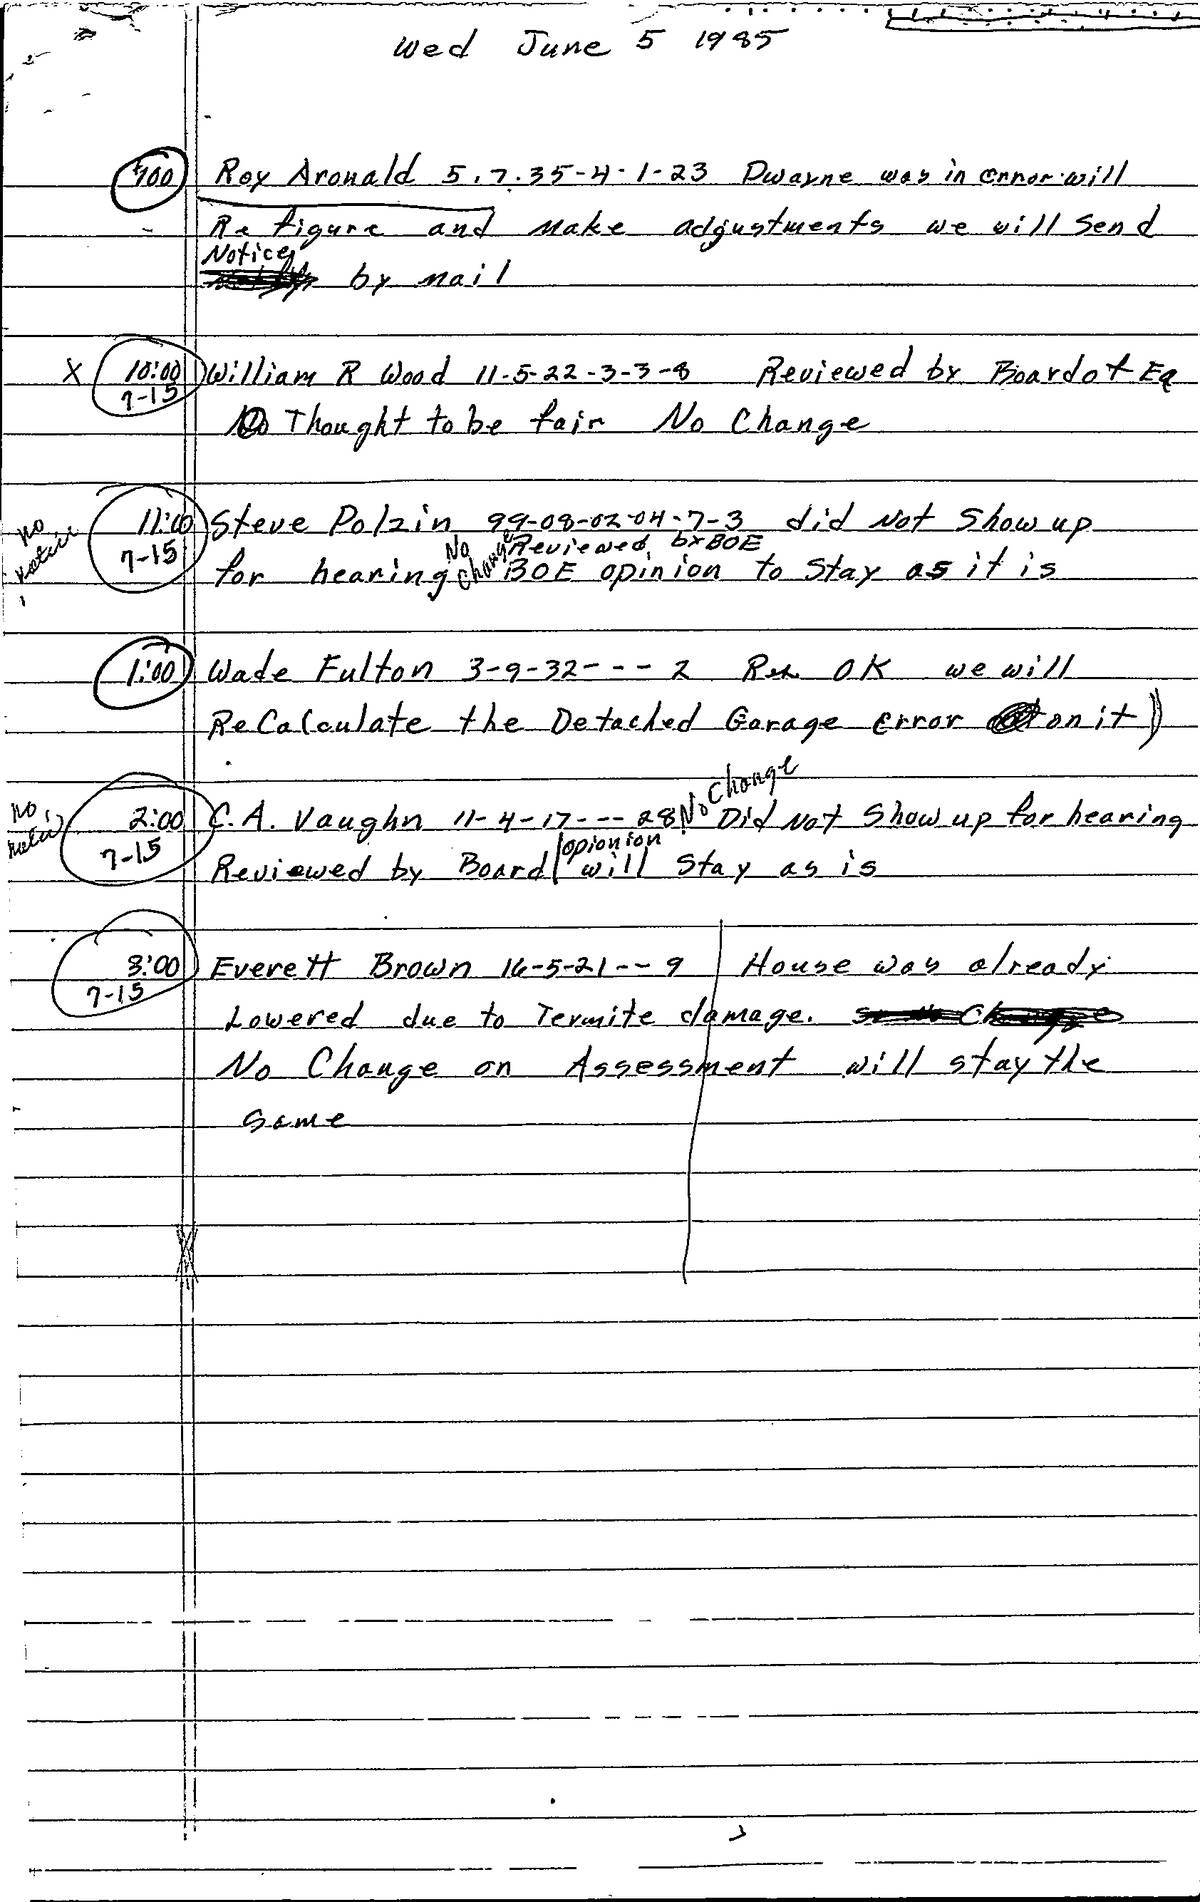 Wed June 5 1985
900 Roy Aronald 5.7.35-4-1-23 Dwayne was in error will
Re figure and make adjustments we will send
Notice
by mail
X 10:00 William R Wood 11-5-22-3-3-8 Reviewed by Board of Eq
7-15
Thought to be fair No Change
no notice
11:00 Steve Polzin 99-08-02-04-7-3 did Not Show up
7-15
No Change Reviewed by BOE
for hearing BOE opinion to Stay as it is
1:00 Wade Fulton 3-9-32--- 2 OK we will
ReCalculate the Detached Garage error on it)
No Change
no
2:00 C.A. Vaughn 11-4-17--- 28 Did Not Show up for hearing
7-15
opionion
Reviewed by Board will Stay as is
3:00 Everett Brown 16-5-21-- 9 House was already
7-15
Lowered due to Termite damage.
No Change on Assessment will stay the
same